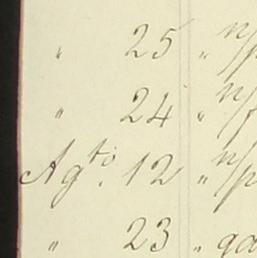 " 25 " n/p
" 24 " n/f
Ag.to 12 " n/p
" 23 " ga